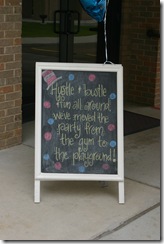 Hustle & bustle
& run all around
we've moved the
party from
the gym to
the playground!